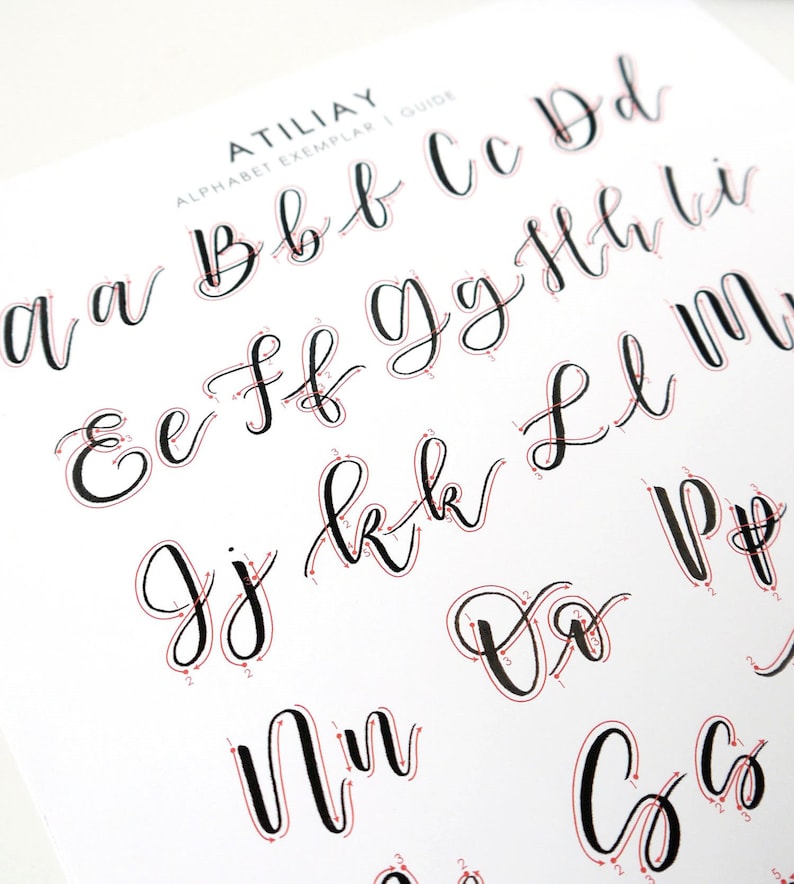 ATILIAY
ALPHABET EXEMPLAR | GUIDE
a a B b b C c D d
E e F f G g H h I i
J j K k L l M
N n O o P p
S s